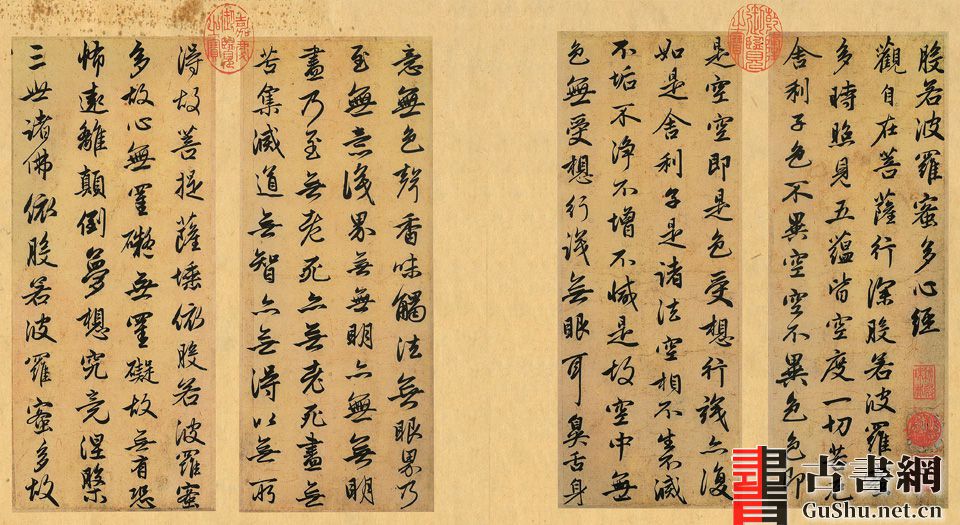 般若波羅蜜多心經
觀自在菩薩行深般若波羅蜜
多時照見五蘊皆空度一切苦厄
舍利子色不異空空不異色色即
是空空即是色受想行識亦復
如是舍利子是諸法空相不生不滅
不垢不淨不增不減是故空中無
色無受想行識無眼耳鼻舌身
意無色聲香味觸法無眼界乃
至無意識界無無明亦無無明
盡乃至無老死亦無老死盡無
苦集滅道無智亦無得以無所
得故菩提薩埵依般若波羅蜜
多故心無罣礙無罣礙故無有恐
怖遠離顛倒夢想究竟涅槃
三世諸佛依般若波羅蜜多故
乾隆御覽之寶
嘉慶御覽之寶
古書網
GuShu.net.cn